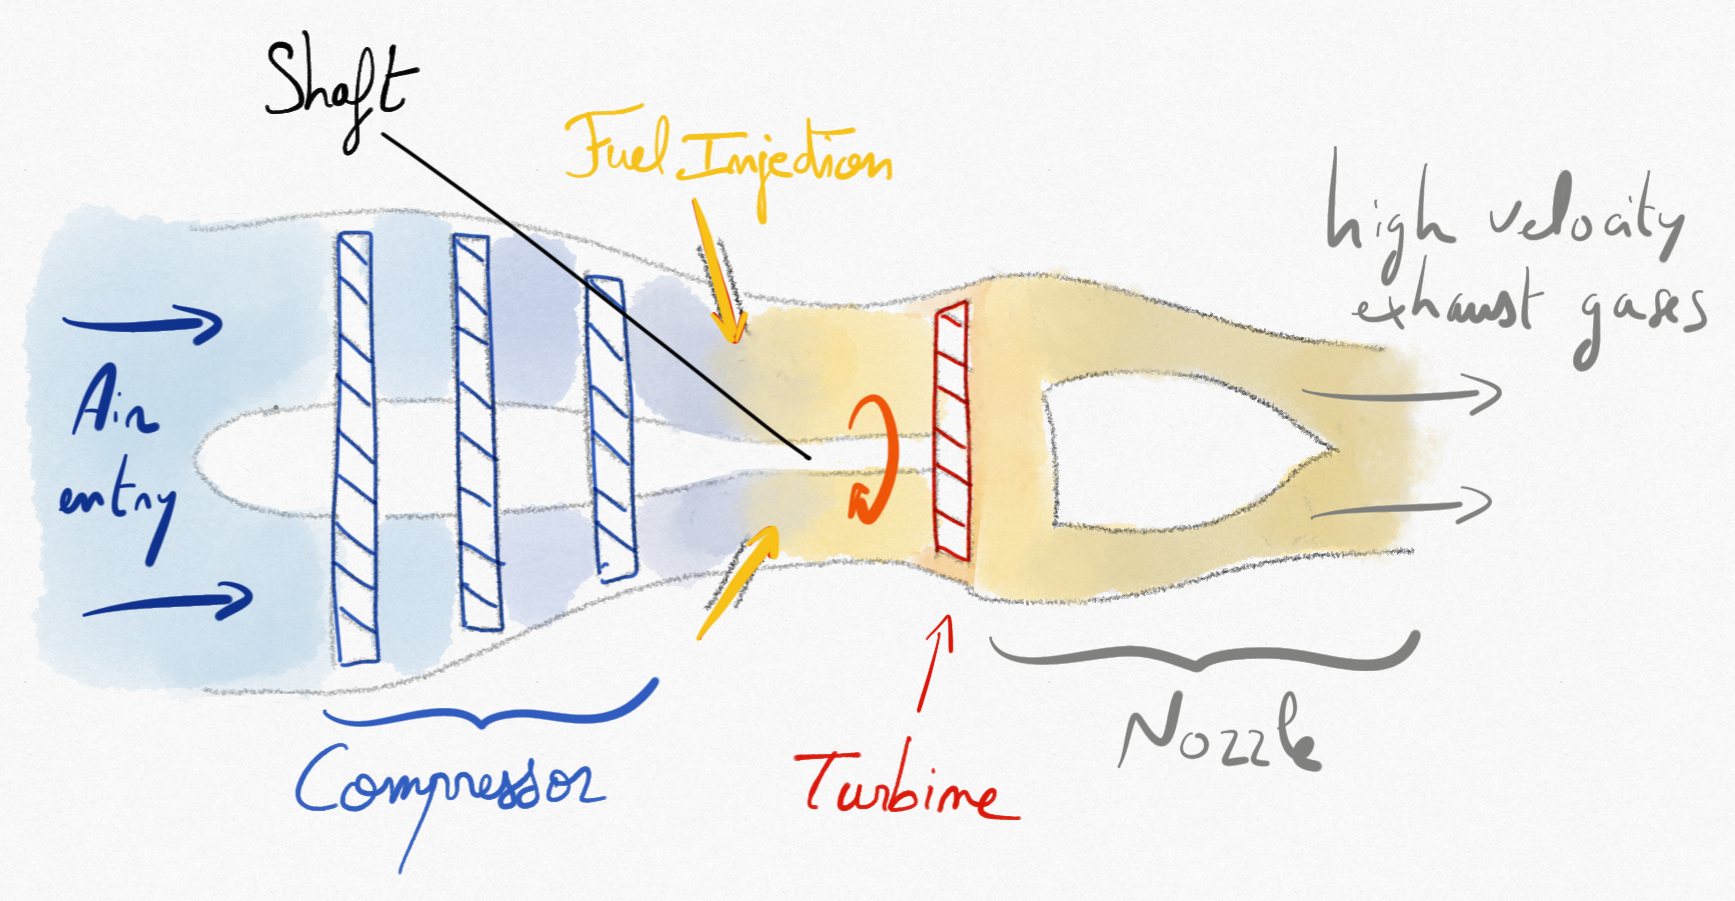 Shaft
Fuel Injection
high velocity
exhaust gases
Air
entry
Compressor
Turbine
Nozzle